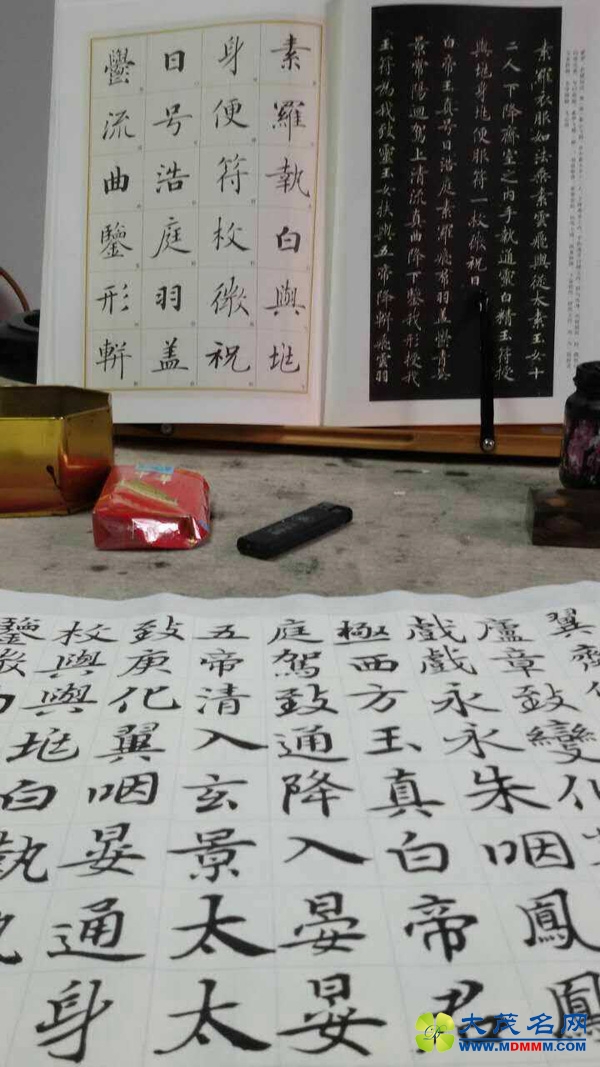 素羅衣服如法乘素雲飛輿從太素玉女十
二人下降齋室之内手執通靈白精玉符授
與地身地便服符一枚微祝曰
白帝玉真号曰浩庭素羅飛帬羽盖鬱青
景常陽迴駕上清流真曲降下鑒我形授我
玉符為我致靈玉女扶輿五帝降軿飛雲羽
素羅執白與地
身便符枚微祝
日号浩庭羽盖
鬱流曲鑒形軿
翼齊
廬章致變化
戲戲永永朱咽鳳鳳
極西方玉真白帝君
庭駕致通降入晏晏
五帝清入玄景太太
致庚化翼咽晏通身
枚與與地白執
鑒微
大茂名网
WWW.MDMMM.COM